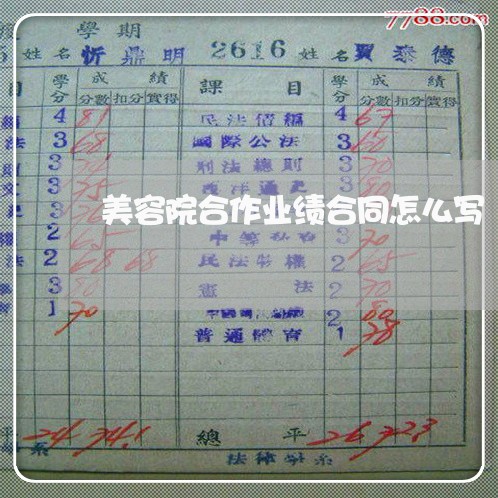 7788.com
學期
姓名 忻鼎明 2616 姓名 賈泰德
目 學分 成績 課目 學分 成績
分數 扣分 實得 分數 扣分 實得
4 81 民法債編 4 67
法 3 68 國際公法 3 60
3 刑法總則 3 70
3 75 西洋通史 3 80
美容院合作业绩合同怎么写
2 65 3 70
法 2 68 68 民法物權 2 65
3 80 憲法 2 70
1 70 2 80
普通體育 1 78
平 24 74.1 總平 26 72.3
系 法律學系